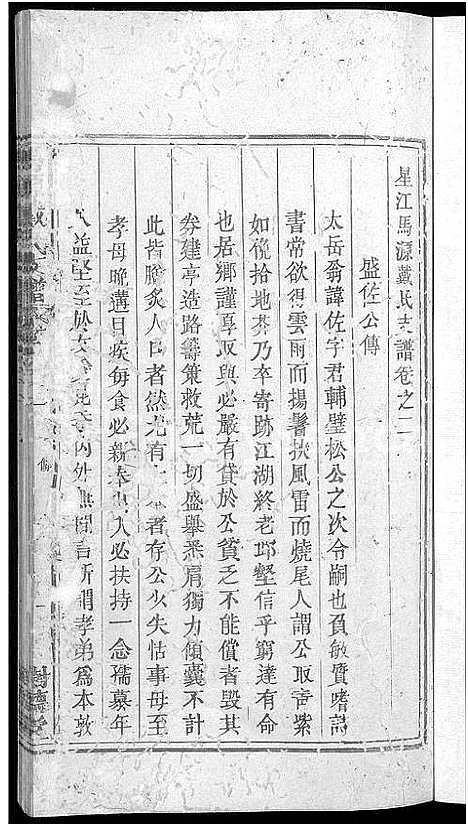 星江馬源戴氏支譜卷之二
盛佐公傳
太岳翁諱佐字君輔璧松公之次令嗣也負敏質嗜詩
書常欲得雲雨而揚鬐挾風雷而燒尾人謂公取青紫
如俛拾地芥乃卒寄跡江湖終老邱壑信乎窮達有命
也居鄉謹厚取與必嚴有貸於公貧乏不能償者毀其
券建亭造路籌策救荒一切盛舉悉肩獨力傾囊不計
此皆膾炙人口者然尤有大本者存公少失怙事母至
孝母晚遘目疾每食必親奉出入必扶持一念孺慕年
益堅至於友 內外無間言所謂孝弟爲本敦